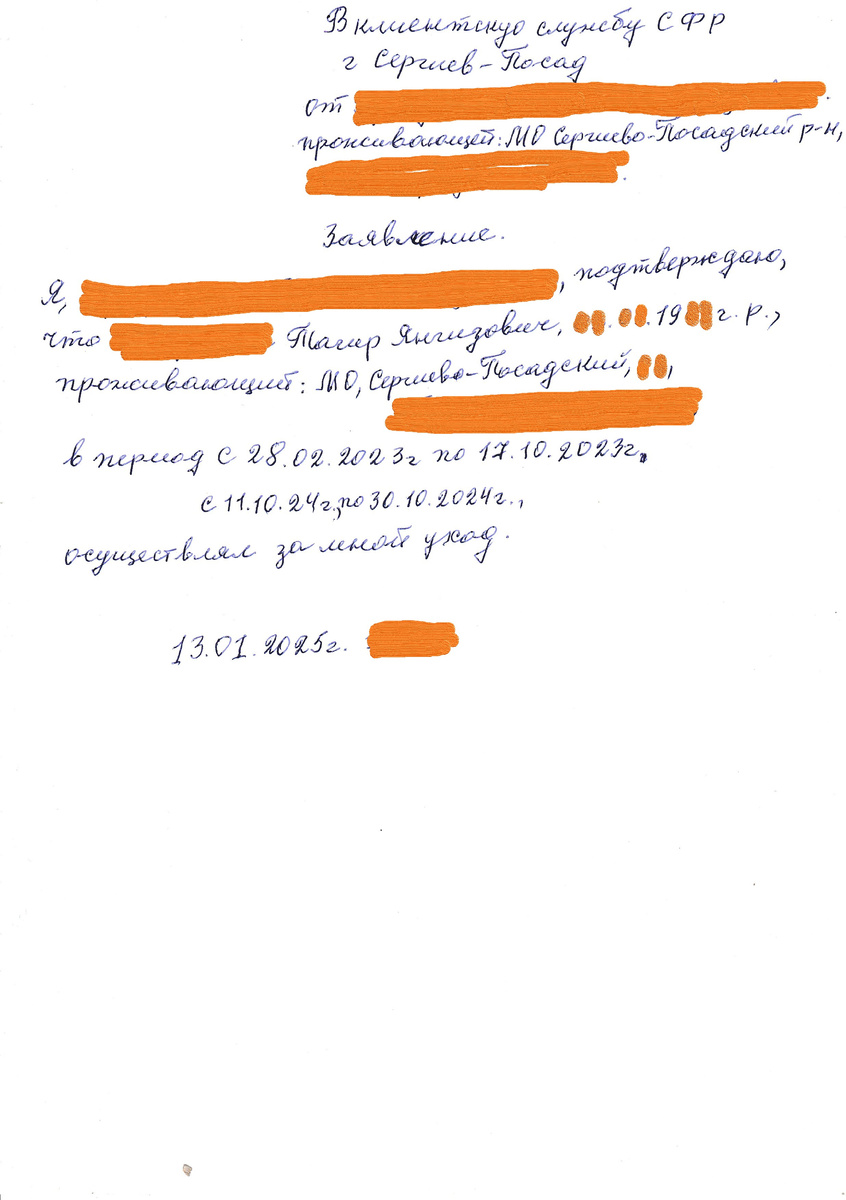 В клиентскую службу СФР
г Сергиев-Посад
от
проживающей: МО Сергиево-Посадский р-н,
Заявление.
Я, , подтверждаю,
что Тагир Янгизович, . .19 г.р.,
проживающий: МО, Сергиево-Посадский, ,
в период с 28.02.2023г по 17.10.2023г.
с 11.10.24г., по 30.10.2024г.,
осуществлял за мной уход.
13.01.2025г.